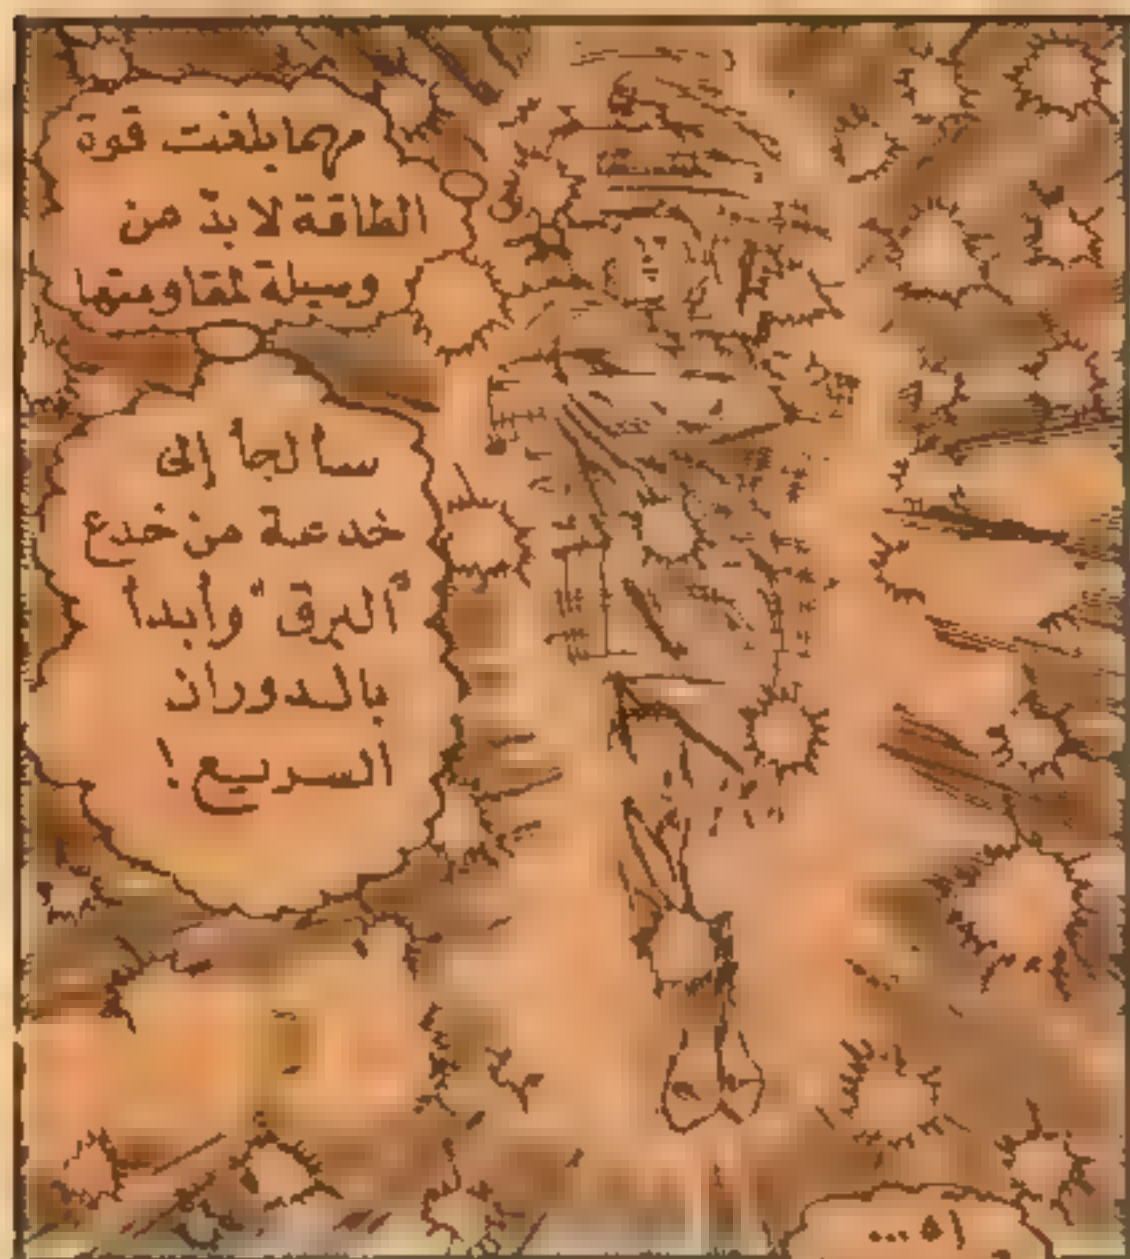 مهما بلغت قوة
الطاقة لا بدّ من
وسيلة لمقاومتها
سألجأ إلى
خدعة من خدع
"البرق" وأبدأ
بالدوران
السريع !